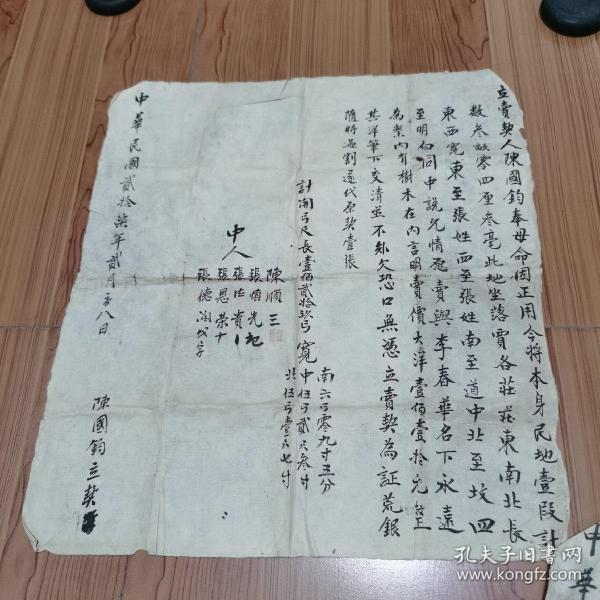 立賣契人陳國鈞奉母命因正用今將本身民地壹段計
數叁畝零四厘叁毫此地坐落賈各莊莊東南北長
東西寬東至張姓西至張姓南至道中北至坟四
至明白同中説允情愿賣與李春華名下永遠
為業內有樹木在內言明賣價大洋壹佰壹拾元整
其洋筆下交清並不短欠恐口無憑立賣契為証荒銀
隨時過割還代原契壹張
計開弓尺長壹佰貳拾玖弓寬
南六弓零九寸三分
中伍弓貳尺叁寸
北伍弓壹尺七寸
中人
陳順三
張
張
張恩榮十
張德潤代字
中華民國貳拾柒年貳月初八日
陳國鈞立契
中華
孔夫子旧书网
www.kongfz.com